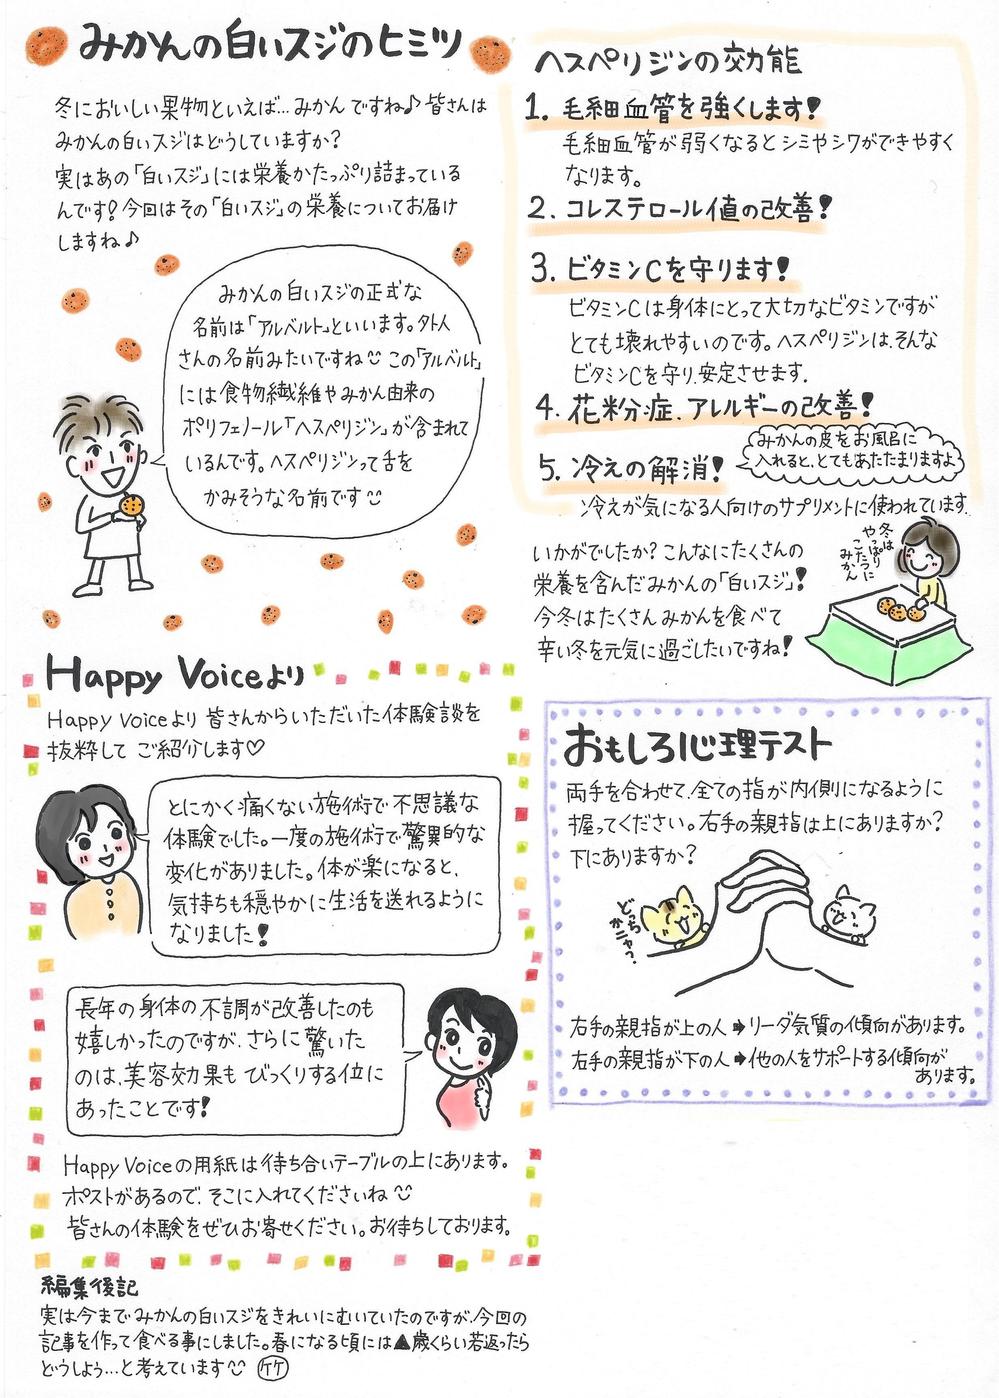 みかんの白いスジのヒミツ
冬においしい果物といえば…みかんですね♪皆さんは
みかんの白いスジはどうしていますか?
実はあの「白いスジ」には栄養がたっぷり詰まっている
んです!今回はその「白いスジ」の栄養についてお届け
しますね♪
みかんの白いスジの正式な
名前は「アルベルト」といいます。外人
さんの名前みたいですね この「アルベルト」
には食物繊維やみかん由来の
ポリフェノール「ヘスペリジン」が含まれて
いるんです。ヘスペリジンって舌を
かみそうな名前です
ヘスペリジンの効能
1. 毛細血管を強くします!
毛細血管が弱くなるとシミやシワができやすく
なります。
2. コレステロール値の改善!
3. ビタミンCを守ります!
ビタミンCは身体にとって大切なビタミンですが
とても壊れやすいのです。ヘスペリジンは、そんな
ビタミンCを守り、安定させます。
4. 花粉症、アレルギーの改善!
5. 冷えの解消!
みかんの皮をお風呂に
入れると、とてもあたたまりますよ
冷えが気になる人向けのサプリメントに使われています。
いかがでしたか?こんなにたくさんの
栄養を含んだみかんの「白いスジ」!
今冬はたくさんみかんを食べて
辛い冬を元気に過ごしたいですね!
冬は
やっぱり
こたつに
みかん
Happy Voiceより
Happy Voiceより皆さんからいただいた体験談を
抜粋してご紹介します♡
とにかく痛くない施術で不思議な
体験でした。一度の施術で驚異的な
変化がありました。体が楽になると、
気持ちも穏やかに生活を送れるように
なりました!
長年の身体の不調が改善したのも
嬉しかったのですが、さらに驚いた
のは、美容効果もびっくりする位に
あったことです!
Happy Voiceの用紙は待ち合いテーブルの上にあります。
ポストがあるので、そこに入れてくださいね
皆さんの体験をぜひお寄せください。お待ちしております。
おもしろ心理テスト
両手を合わせて、全ての指が内側になるように
握ってください。右手の親指は上にありますか?
下にありますか?
どっち
かニャ?
右手の親指が上の人➡リーダ気質の傾向があります。
右手の親指が下の人➡他の人をサポートする傾向が
あります。
編集後記
実は今までみかんの白いスジをきれいにむいていたのですが、今回の
記事を作って食べる事にしました。春になる頃には▲歳くらい若返ったら
どうしよう…と考えています ケケ